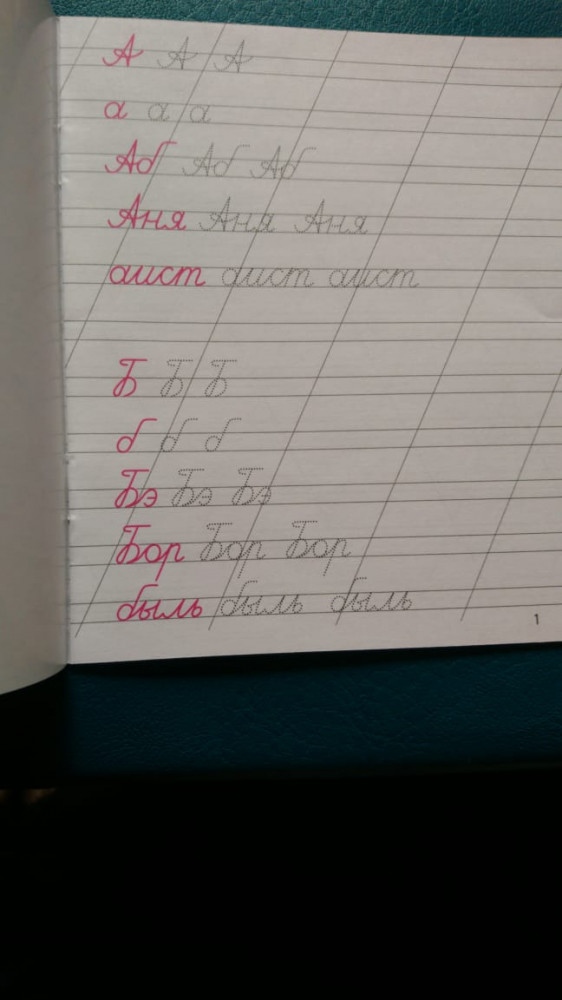 А А А
а а а
Аб Аб Аб
Аня Аня Аня
аист аист аист
Б Б Б
б б б
Бэ Бэ Бэ
Бор Бор Бор
быль быль быль
1